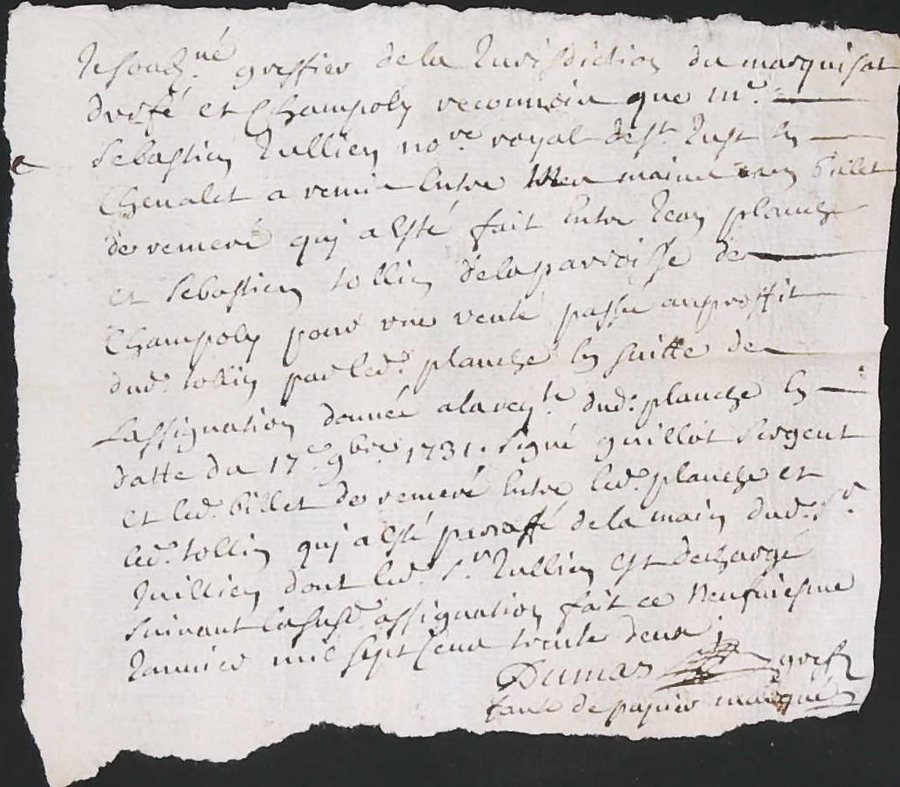 Je souz.né greffier de la Jurisdiction du marquisat
durfé et Champoly reconnoix que m.e
Sebastien Jullien no.re royal de st Just en
Chevalet a remis entre mes mains un billet
de remeré quj a esté fait entre Jean planche
et Sebastien tollin de la parroisse de
Champoly pour une vente passée au proffit
dud. tollin par led. planche en suitte de
Lassignation donnée a la req.te dud. planche en
datte du 17.e 9bre 1731. signé guillot sergent
et led. billet de remeré entre led. planche et
led. tollin quj a esté paraffé de la main dud. S.r
Juillien dont led. S.r Jullien est dechargé
suivant la susd. assignation fait ce neufviesme
Janvier mil sept cens trente deux ;
Dumas greff.
faute de papier marqué